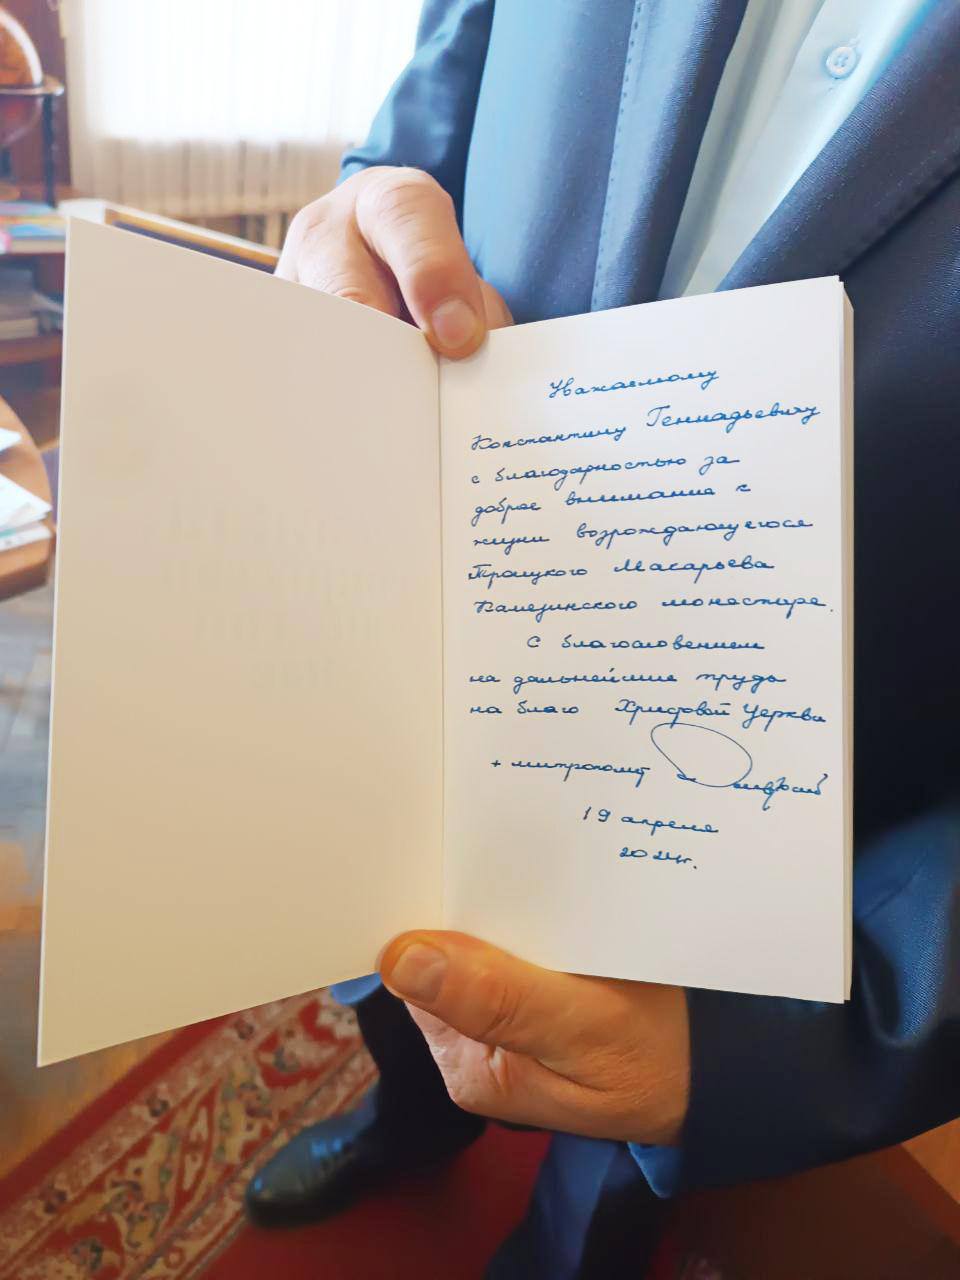 Уважаемому
Константину Геннадьевичу
с благодарностью за
доброе внимание к
жизни возрождающегося
Троицкого Макарьева
монастыря.
С благословением
на дальнейшие труды
на благо Христовой Церкви
+ митрополит
19 апреля
2024г.